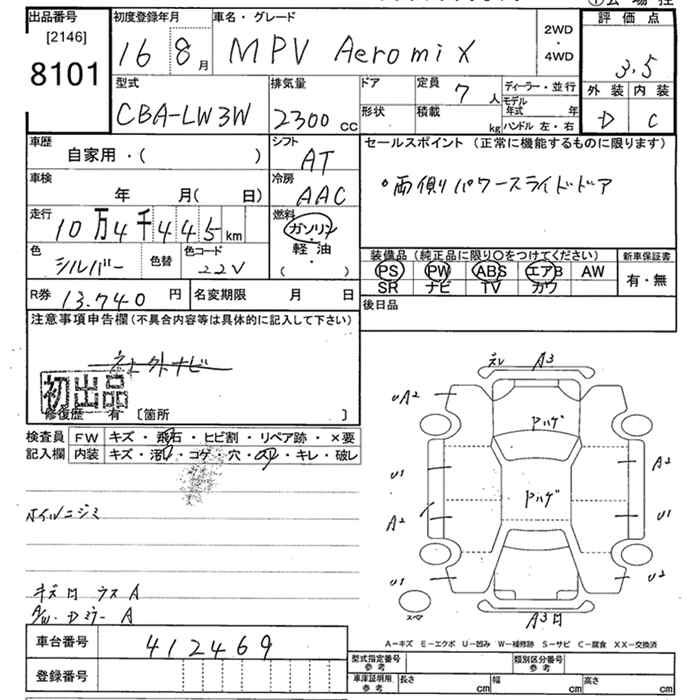 出品番号 初度登録年月 車名・グレード 評価点
[2146]
8101
16 8月 MPV Aeromix 2WD・4WD 3,5
外装 内装
D C
型式 排気量 ドア 定員 7人 ディーラー・並行
CBA-LW3W 2300cc 形状 積載 kg モデル年式 年
ハンドル 左・右
車歴 自家用・( ) シフト AT
セールスポイント(正常に機能するものに限ります)
・両側パワースライドドア
車検 年 月( 日) 冷房 AAC
走行 10万4千445km 燃料 ガソリン・軽油・( )
色 シルバー 色替 色コード 22V
装備品(純正品に限り〇をつけてください) 新車保証書
PS PW ABS エアB AW 有・無
SR ナビ TV カワ
R券 13.740円 名変期限 月 日 後日品
注意事項申告欄(不具合内容等は具体的に記入して下さい)
初出品
修復歴 有 [箇所 ]
検査員記入欄 FW キズ・飛石・ヒビ割・リペア跡・×要
内装 キズ・汚レ・コゲ・穴・スレ・キレ・破レ
オイルニジミ
A3
UA2
ヤハゲ
U1 A2
ヤハゲ
A2 U1
U1 U2
スペア
A3
A=キズ E=エクボ U=凹み W=補修跡 S=サビ C=腐食 XX=交換済
車台番号 412469
登録番号
型式指定番号 参考 類別区分番号 参考
車庫証明用 参考 長さ cm 幅 cm 高さ cm